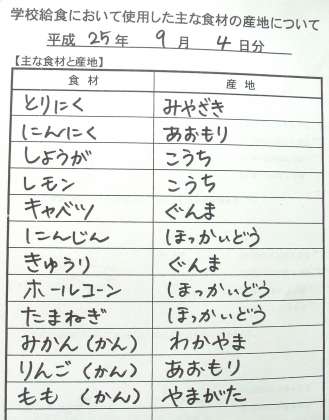 学校給食において使用した主な食材の産地について
平成 25 年 9 月 4 日分
【主な食材と産地】
食材 産地
とりにく みやざき
にんにく あおもり
しょうが こうち
レモン こうち
キャベツ ぐんま
にんじん ほっかいどう
きゅうり ぐんま
ホールコーン ほっかいどう
たまねぎ ほっかいどう
みかん(かん) わかやま
りんご(かん) あおもり
もも (かん) やまがた